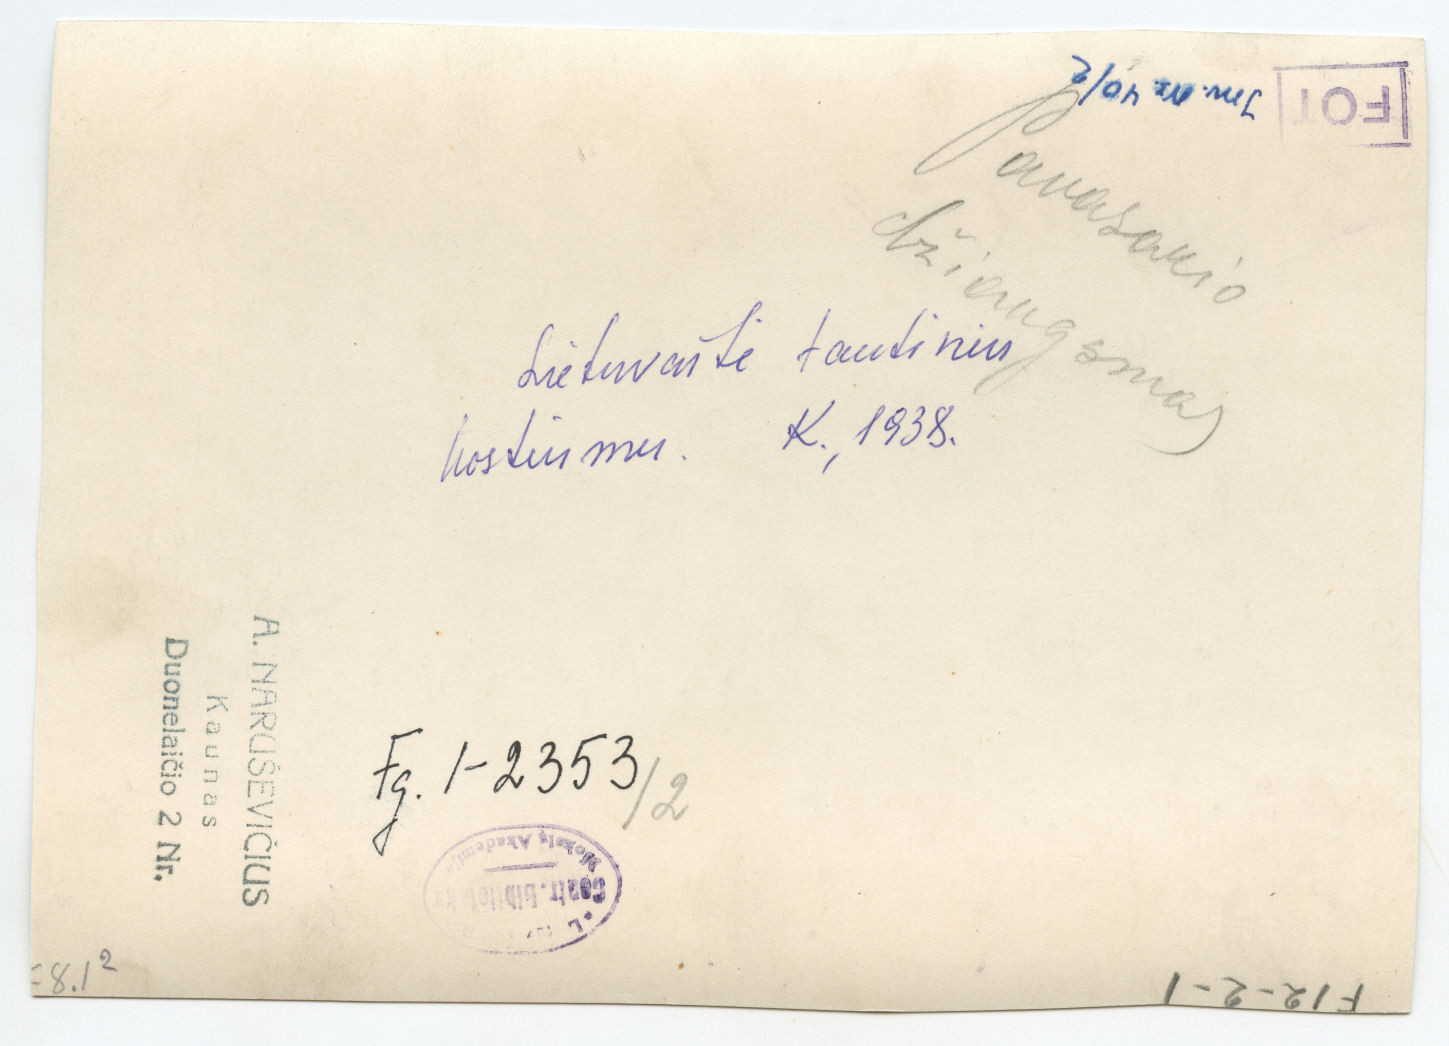 Inv. Nr. 40/2
FOT
Pavasario
džiaugsmas
Lietuvaitė tautiniu
kostiumu. K., 1938.
A. NARUŠEVIČIUS
Kaunas
Duonelaičio 2 Nr.
Fg. 1-2353/2
Mokslų Akademija
Centr. Biblioteka
8.1²
F12-2-1